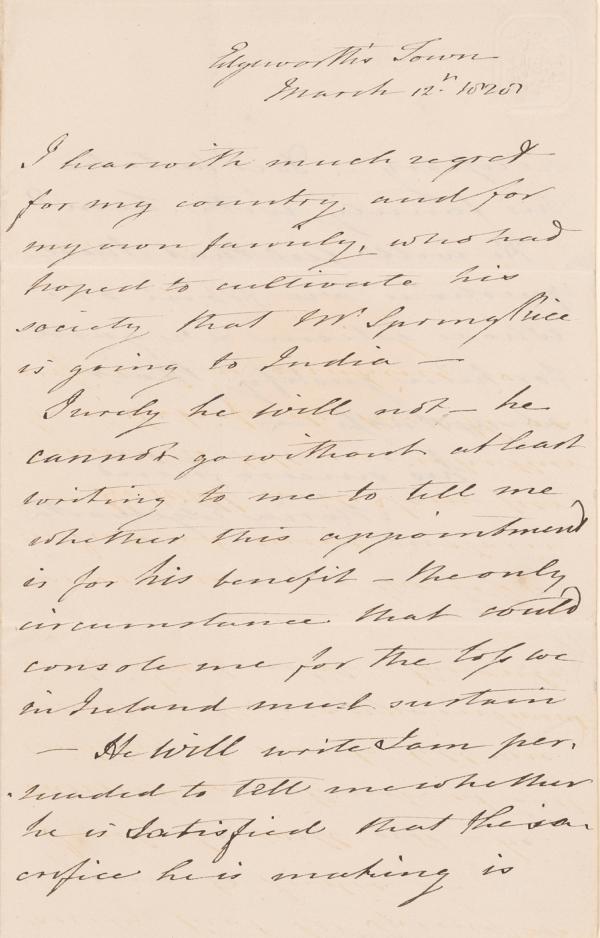 Edgeworth's Town
March 12th 1828
I hear with much regret
for my country and for
my own family, who had
hoped to cultivate his
society that Mr. Spring Rice
is going to India —
Surely he will not — he
cannot go without at least
writing to me to tell me
whether this appointment
is for his benefit — the only
circumstance that could
console me for the loss we
in Ireland must sustain
— He will write I am per-
suaded to tell me whether
he is satisfied that the sa-
crifice he is making is